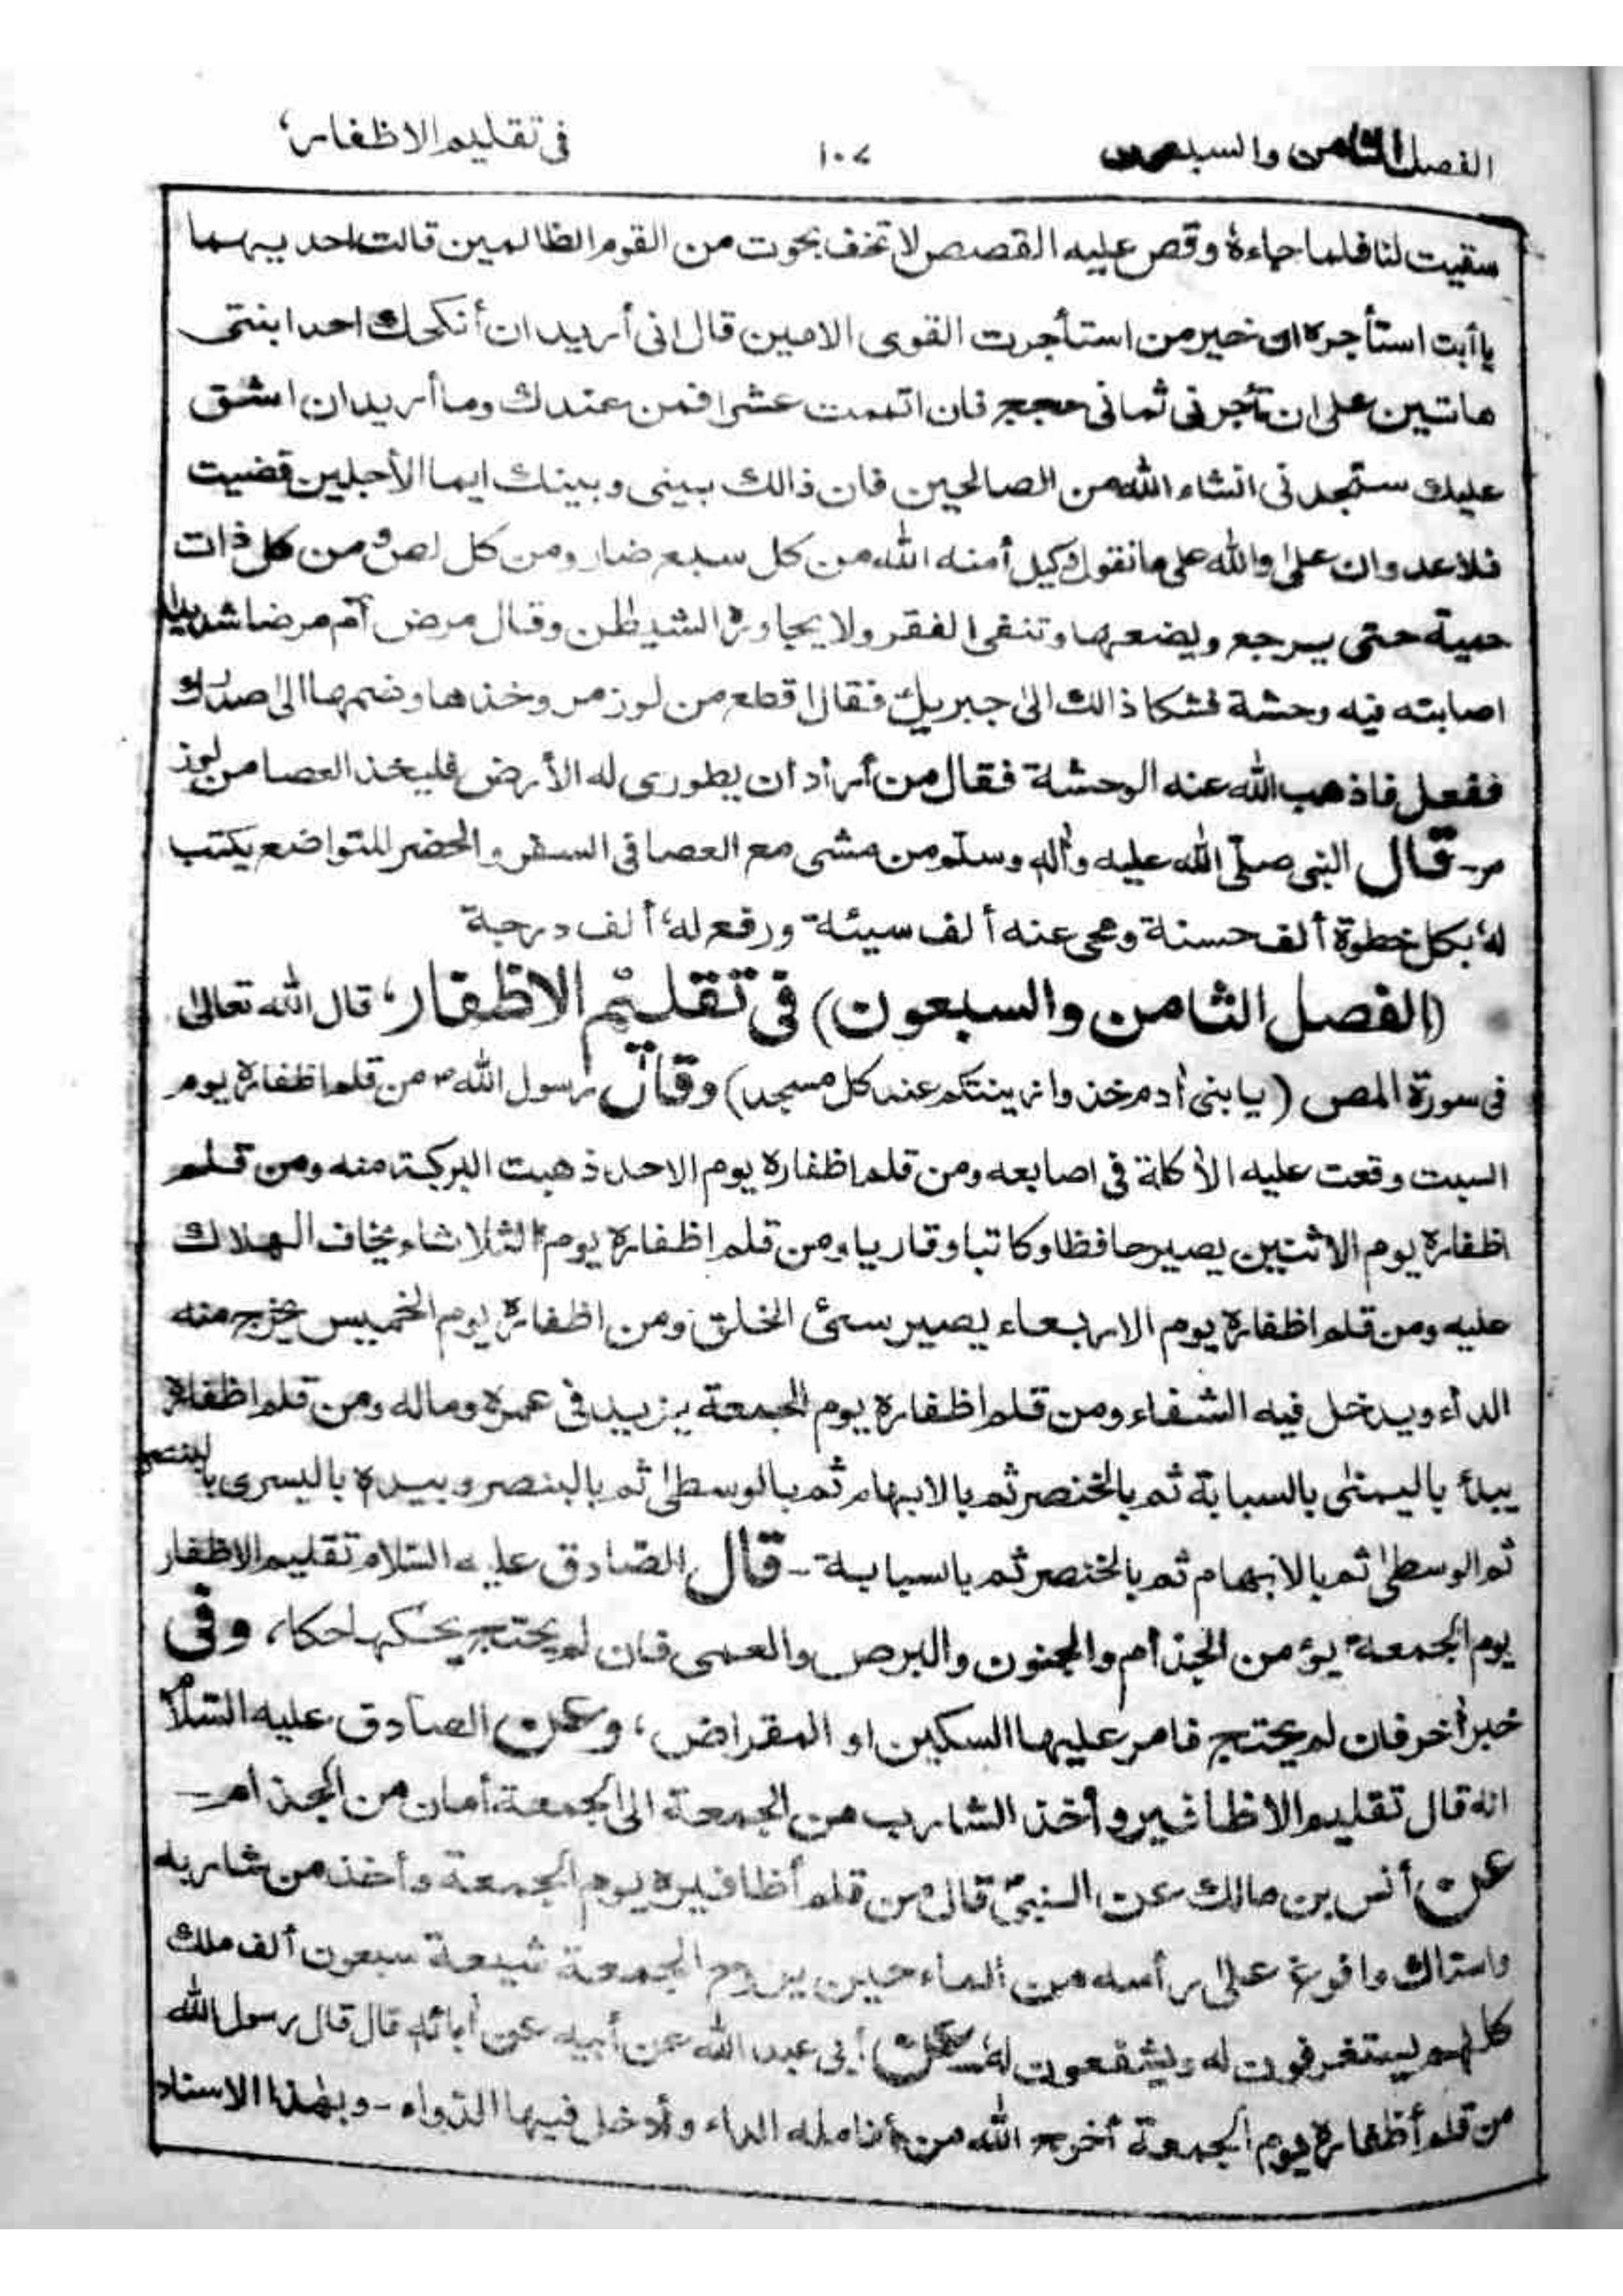 الفصل الثامن والسبعون ١٠٧ فى تقليم الاظفار،
سقيت لنا فلما جاءهٗ وقص عليه القصص لا تخف نجوت من القوم الظالمين قالت احديهما
ياأبت استأجره ان خير من استأجرت القوى الامين قال انى أريد ان أنكحك احدا بنتى
هاتين على ان تأجرنى ثمانى حجج فان اتممت عشرا فمن عندك وما أريد ان اشق
عليك ستجدنى انشاء الله من الصالحين فان ذالك بينى وبينك ايما الأجلين قضيت
فلا عدوان على والله على ما نقول وكيل أمنه الله من كل سبع ضار ومن كل لص ومن كل ذات
حمية حتى يرجع ويضعها وتنفى الفقر ولا يجاوره الشيطٰن وقال مرض آدم مرضا شديدا
اصابته فيه وحشة فشكا ذالك الىٰ جبريل فقال اقطع من لوز مر وخذها وضمها الى صدرك
ففعل فاذهب الله عنه الوحشة فقال من أراد ان يطورى له الأرض فليخذ العصا من لوز
مر۔ قال النبى صلّى الله عليه وأله وسلّم من مشى مع العصا فى السفر والحضر للتواضع يكتب
لهٗ بكل خطوة ألف حسنة ومحى عنه ألف سيئة ورفع لهٗ ألف درجة
(الفصل الثامن والسبعون) فى تقليم الاظفار، قال الله تعالىٰ
فى سورة المص (يا بنى أدم خذوا زينتكم عند كل مسجد) وقال رسول اللهؐ من قلم اظفاره يوم
السبت وقعت عليه الأكلة فى اصابعه ومن قلم اظفاره يوم الاحد ذهبت البركة منه ومن قلم
اظفاره يوم الاثنين يصير حافظا وكاتبا وقاريا ومن قلم اظفاره يوم الثلاثاء يخاف الهلاك
عليه ومن قلم اظفاره يوم الاربعاء يصير سئ الخلق ومن اظفاره يوم الخميس يخرج منه
الداء ويدخل فيه الشفاء ومن قلم اظفاره يوم الجمعة يزيد فى عمره وماله ومن قلم اظفاره
يبدأ باليمنىٰ بالسبابة ثم بالخنصر ثم بالابهام ثم بالوسطىٰ ثم بالبنصر وبيده باليسرى بالبنصر
ثم الوسطىٰ ثم بالابهام ثم بالخنصر ثم بالسبابة۔ قال الصّادق عليه السّلام تقليم الاظفار
يوم الجمعة يؤمن الجذام والجنون والبرص والعمى فان لم يحتج يحكها حكا، وفى
خبر أخر فان لم يحتج فامر عليها السكين او المقراض، وعن الصادق عليه السّلام
انه قال تقليم الاظافير وأخذ الشارب من الجمعة الى الجمعة أمان من الجذام۔
عن أنس بن مالك عن النبىؐ قال من قلم أظافيره يوم الجمعة وأخذ من شاربه
واستاك وافوغ على رأسه من ألماء حين يروم الجمعة شيعة سبعون ألف ملك
كلهم ليستغرفون له ويشفعون لهٗ۔ عن أبى عبد الله عن أبيه عن أبائه قال قال رسول الله
من قلم أظفاره يوم الجمعة أخرج الله من أنامله الداء وأدخل فيها الدواء۔ وبهٰذا الاسناد